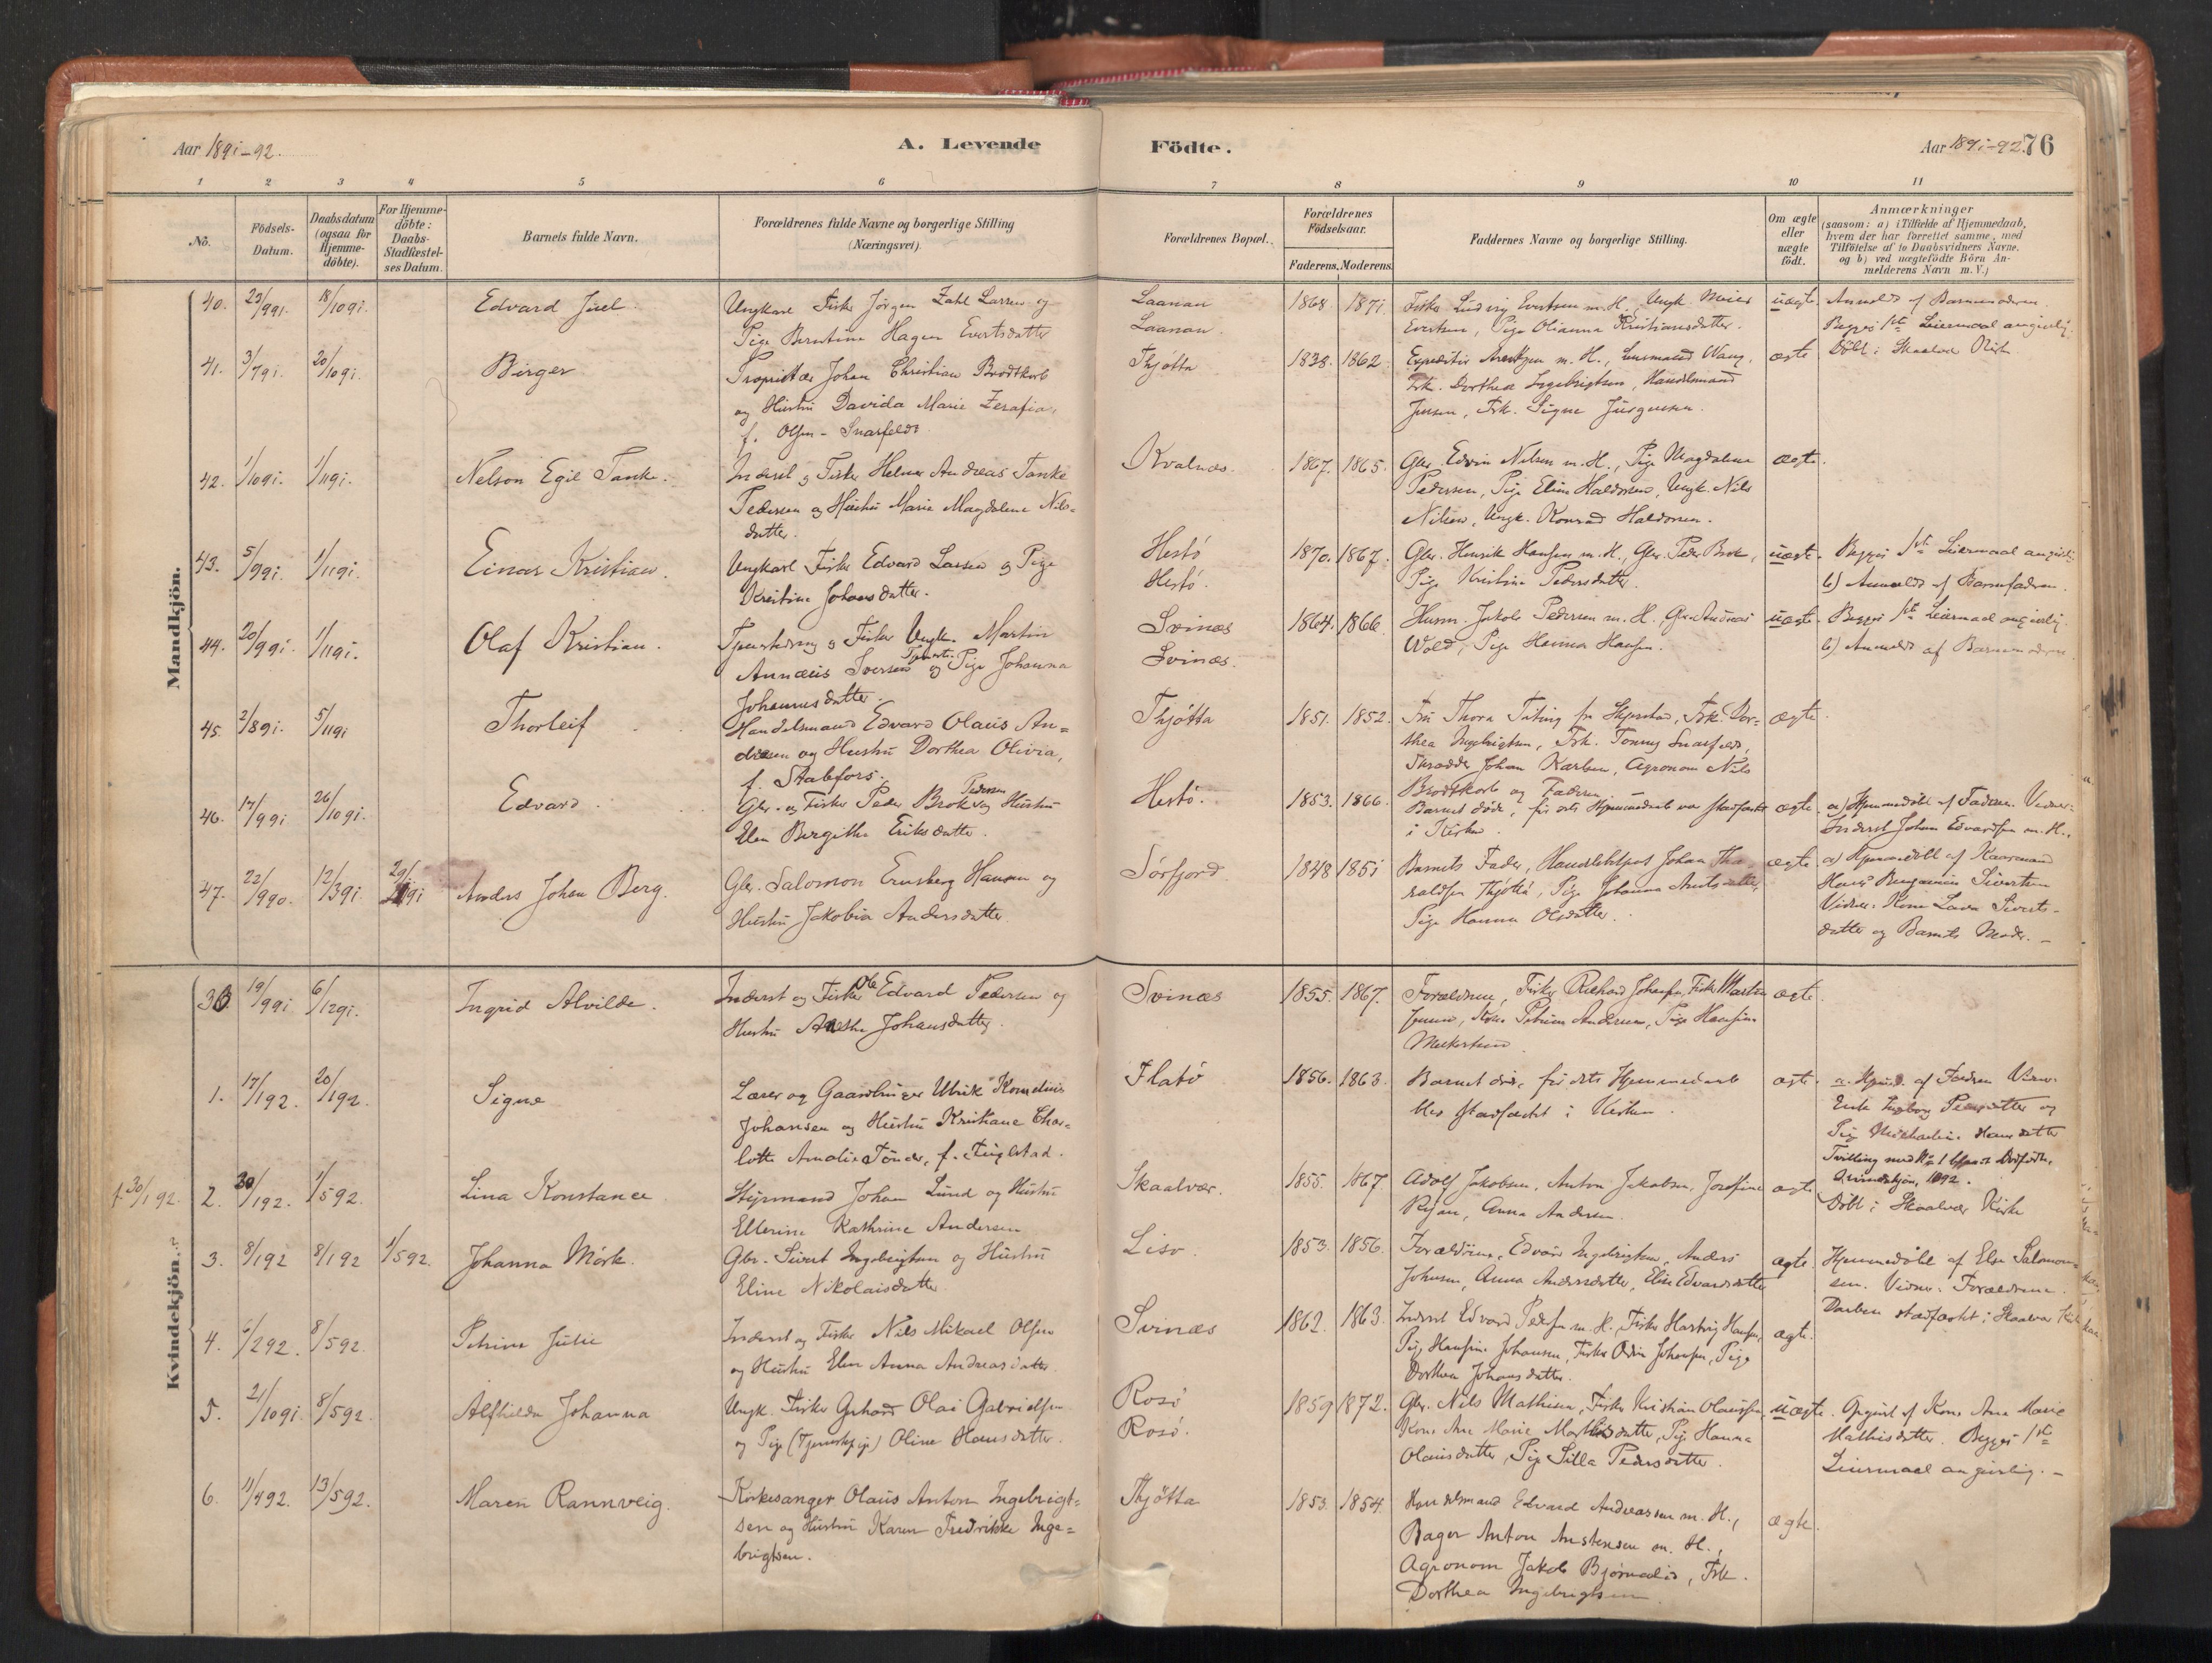 Aar 1891-92.
A. Levende
Födte.
Aar 1891-92. 76
1 2 3 4 5 6 7 8 9 10 11
No.
Födsels-
Datum.
Daabsdatum
(ogsaa for
Hjemme-
döbte).
For Hjemme-
döbte:
Daabs-
Stadfæstel-
ses Datum.
Barnets fulde Navn.
Forældrenes fulde Navne og borgerlige Stilling
(Næringsvei).
Forældrenes Bopæl.
Forældrenes
Födselsaar.
Faderens. Moderens.
Faddernes Navne og borgerlige Stilling.
Om ægte
eller
uægte
födt.
Anmærkninger
(saasom: a) i Tilfælde af Hjemmedaab,
hvem der har forrettet samme, med
Tilföielse af to Daabsvidners Navne,
og b) ved uægtefödte Börn An-
melderens Navn m. V.)
Mandkjön.
40. 23/991. 18/1091. Edvard Juel.
Ungkarl Fisker Jörgen Zahl Larsen og
Pige Berntine Hagen Evertsdatter
Laanan
Laanan.
1868. 1871.
Fisker Ludvig Evertsen m. H., Ungk. Meier
Evertsen, Pige Olianna Kristiansdatter.
uægte.
Anmeldt af Barnemoderen.
Begges 1ste Leiermaal angivelig.
Döbt i Skaalvær Kirke
41. 3/791. 20/1091. Birger
Proprietær Johan Christian Brodtkorb
og Hustru Davida Marie Zerafia,
f. Olsen-Snarfeldt
Thjötta
1838. 1862.
Expeditör m. H., Lensmand Wang,
Frk. Dorthea Ingebrigtsen, Handelsmand
Jensen, Frk. Signe Jürgensen.
ægte
42. 1/1091. 1/1191. Nelson Egil Tanke.
Inderst og Fisker Helmer Andreas Tanke
Pedersen og Hustru Marie Magdalene Nils-
datter.
Kvalnæs.
1867. 1865.
Gbr. Edvin Nilsen m. H., Pige Magdalene
Pedersen, Pige Eline Haldorsen, Ungk. Nils
Nilsen, Ungk. Konrad Haldorsen.
ægte.
43. 5/991. 1/1191. Einar Kristian.
Ungkarl Fisker Edvard Larsen og Pige
Kristine Johansdatter.
Hestö
Hestö.
1870. 1867.
Gbr. Henrik Hansen m. H., Gbr. Peder Brok,
Pige Kristine Pedersdatter.
uægte.
Begges 1ste Leiermaal angivelig
b) Anmeldt af Barnefaderen.
44. 20/991. 1/1191. Olaf Kristian.
Tjenestedreng og Fisker Ungk. Martin
Annæus Iversen og Tjeneste-Pige Johanna
Johannesdatter.
Svinæs
Svinæs.
1864. 1866.
Husm. Jakob Pedersen m. H., Gbr. Andreas
Wold, Pige Hanna Hansen.
uægte.
Begges 1ste Leiermaal angivelig.
b) Anmeldt af Barnemoderen.
45. 2/891. 5/1191 Thorleif
Handelsmand Edvard Olaus An-
dresen og Hustru Dorthea Olivia,
f. Stabfors.
Thjötta
1851. 1852.
Fru Thora Fiting fr. , Frk. Dor-
thea Ingebrigtsen, Frk. Tonny Snarfeldt,
Skrædder Johan Karlsen, Agronom Nils
Brodtkorb og Faderen.
ægte.
46. 17/991 26/1091. Edvard.
Gbr. og Fisker Peder Brok Pedersen og Hustru
Elen Bergithe Eriksdatter.
Hestö.
1853. 1866.
Barnet döde, för dets Hjemmedaab var stadfæstet
i Kirken.
ægte.
a) Hjemmedöbt af Faderen. Vidner:
Inderst Johan Edvardsen m. H.,
47. 22/990. 12/391. Anders Johan Berg.
Gbr. Salomon Ernsberg Hansen og
Hustru Jakobia Andersdatter.
Sörfjord
1848 1851
Barnets Fader, Handelsbetjent Johan Tha-
raldsen Thjötta, Pige Johanna Arntsdatter,
Pige Hanna Olsdatter.
ægte.
a) Hjemmedöbt af Kaarmand
Hans Benjamin Sivertsen
Vidner: Kone Lava Siverts-
datter og Barnets Moder.
Kvindekjön.
36 19/991 6/1291. Ingrid Alvilde.
Inderst og Fisker Ole Edvard Pedersen og
Hustru Anethe Johansdatter.
Svinæs
1855. 1867.
Forældrene, Fisker Richard Johansen, Fisker Martin
Jensen, Kone Petrine Andersen, Pige Hansine
ægte.
1. 17/192. 20/192. Signe
Lærer og Gaardbruger Ulrik Kornelius
Johansen og Hustru Kristiane Char-
lotte Amalie Tönder, f. Fingstad.
Flatö
1856. 1863.
Barnet döde, för dets Hjemmedaab
blev stadfæstet i Kirken.
ægte.
a. Hjemd. af Faderen Vidner:
Enke Ingborg Pedersdatter og
Pige Hansdatter
Tvilling med No 1 blandt Dödfödte,
Qvindekjön, 1892.
f. 30/192. 2. 30/192. 1/592. Lina Konstance
Styrmand Johan Lund og Hustru
Ellerine Kathrine Andersen
Skaalvær.
1855. 1867.
Adolf Jakobsen, Anton Jakobsen, Josefine
Rian, Anna Andersen.
ægte
Döbt i Skaalvær Kirke
3. 8/192 8/192 1/592. Johanna Mörk.
Gbr. Sivert Ingebrigtsen og Hustru
Eline Nikolaisdatter
Lisö.
1853. 1856.
Forældrene, Edvard Ingebrigtsen, Anders
Johnsen, Anna Andersdatter, Elin Edvardsdatter
ægte.
Hjemmedöbt af Else Salomon-
sen. Vidner: Forældrene.
Daaben stadfæstet i Skaalvær Kirke
4. 6/292. 8/592. Petrine Julie
Inderst og Fisker Nils Mikael Olsen
og Hustru Elen Anna Andreasdatter
Svinæs
1862. 1863.
Inderst Edvard Pedersen m. H., Fisker Hartvig Hansen,
Pige Hansine Johansen, Fisker Odin Johansen, Pige
Dorthea Johansdatter.
ægte.
5. 21/1091 8/592. Alfhilda Johanna
Ungk. Fisker Gerhard Olai Gabrielsen
og Pige (Tjenestepige) Oline Hansdatter.
Rosö
Rosö.
1859 1872.
Gbr. Nils Mathisen, Fisker Kristian Olaussen,
Kone Ane Marie Mathisdatter, Pige Hanna
Olausdatter, Pige Silla Pedersdatter.
uægte.
Opgivet af Kone Ane Marie
Mathisdatter. Begges 1ste
Leiermaal angivelig.
6. 11/492. 13/592. Maren Rannveig.
Kirkesanger Olaus Anton Ingebrigt-
sen og Hustru Karen Fredrikke Inge-
brigtsen.
Thjötta
1853. 1854.
Handelsmand Edvard Andreassen m. H.,
Bager Anton Austensen m. H.,
Agronom Jakob Bjørnalis, Frk.
Dorthea Ingebrigtsen
ægte.